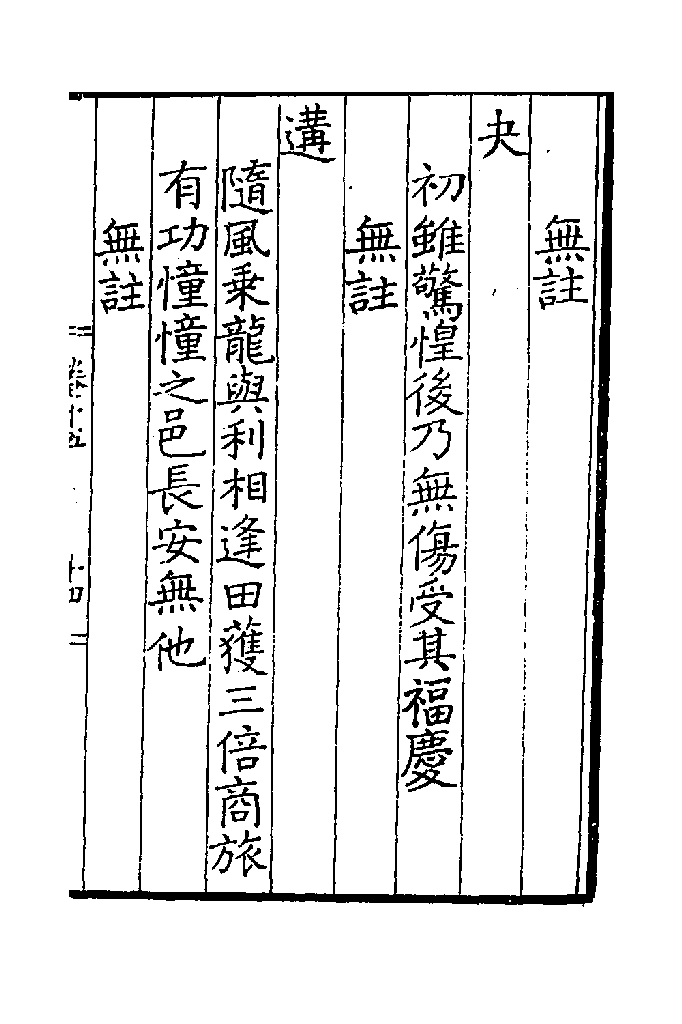 無註
夬
初雖驚惶後乃無傷受其福慶
無註
遘
隨風乘龍與利相逢田獲三倍商旅
有功憧憧之邑長安無他
無註
卷十五
十四